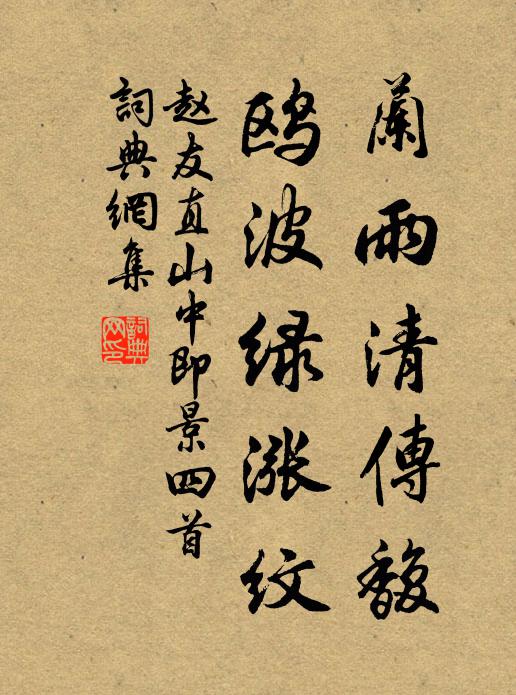 蘭雨清傳馥
鸥波绿漲紋
赵友直山中即景四首
詞典網集
詞典網印